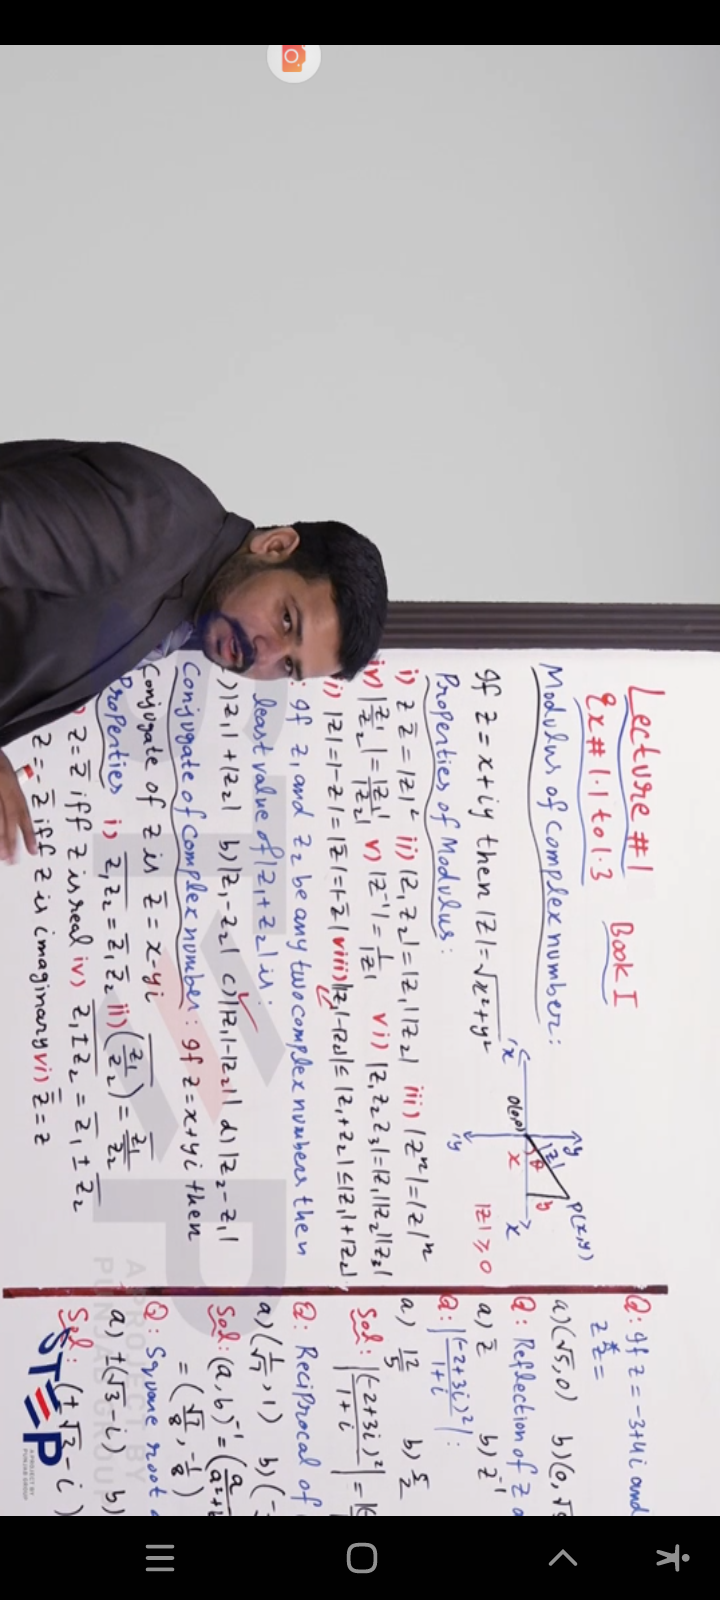 Lecture #1 Book I
Ex # 1.1 to 1.3
Modulus of Complex number:
If z = x+iy then |z| = √x²+y²
y
P(x,y)
|z|
θ
y
O(0,0)
x
x
'x
'y
|z| ≥ 0
Properties of Modulus:
i) z z̅ = |z|² ii) |z₁z₂| = |z₁||z₂| iii) |zⁿ| = |z|ⁿ
iv) |z₁/z₂| = |z₁|/|z₂| v) |z⁻¹| = 1/|z| vi) |z₁z₂z₃| = |z₁||z₂||z₃|
|z| = |-z| = |z̅| = |-z̅| viii) ||z₁|-|z₂|| ≤ |z₁+z₂| ≤ |z₁|+|z₂|
: If z₁ and z₂ be any two complex numbers then
least value of |z₁+z₂| is:
) |z₁|+|z₂| b) |z₁-z₂| c) ||z₁|-|z₂|| d) |z₂-z₁|
Conjugate of Complex number: If z = x+yi then
Conjugate of z is z̅ = x-yi
Properties i) z̅₁z̅₂ = z̅₁ z̅₂ ii) (z₁/z₂) = z̅₁/z̅₂
) z = z̅ iff z is real iv) z₁ ± z₂ = z̅₁ ± z̅₂
z = -z̅ iff z is imaginary vi) z̅ = z
Q: If z = -3+4i and
z =
a) (√5,0) b) (0,√
Q: Reflection of z
a) z̅ b) z⁻¹
Q: |(-2+3i)²/1+i| :
a) 12/5 b) 5/2
Sol: |(-2+3i)²/1+i| =
Q: Reciprocal of
a) (1/√7, 1) b) (-
Sol: (a,b)⁻¹ = (a/a²+b
= (√7/8, -1/8)
Q: Square root
a) ±(√3-i) b)
Sol: (±√3-i)
STEP
A PROJECT BY
PUNJAB GROUP
STEP
A PROJECT BY
PUNJAB GROUP